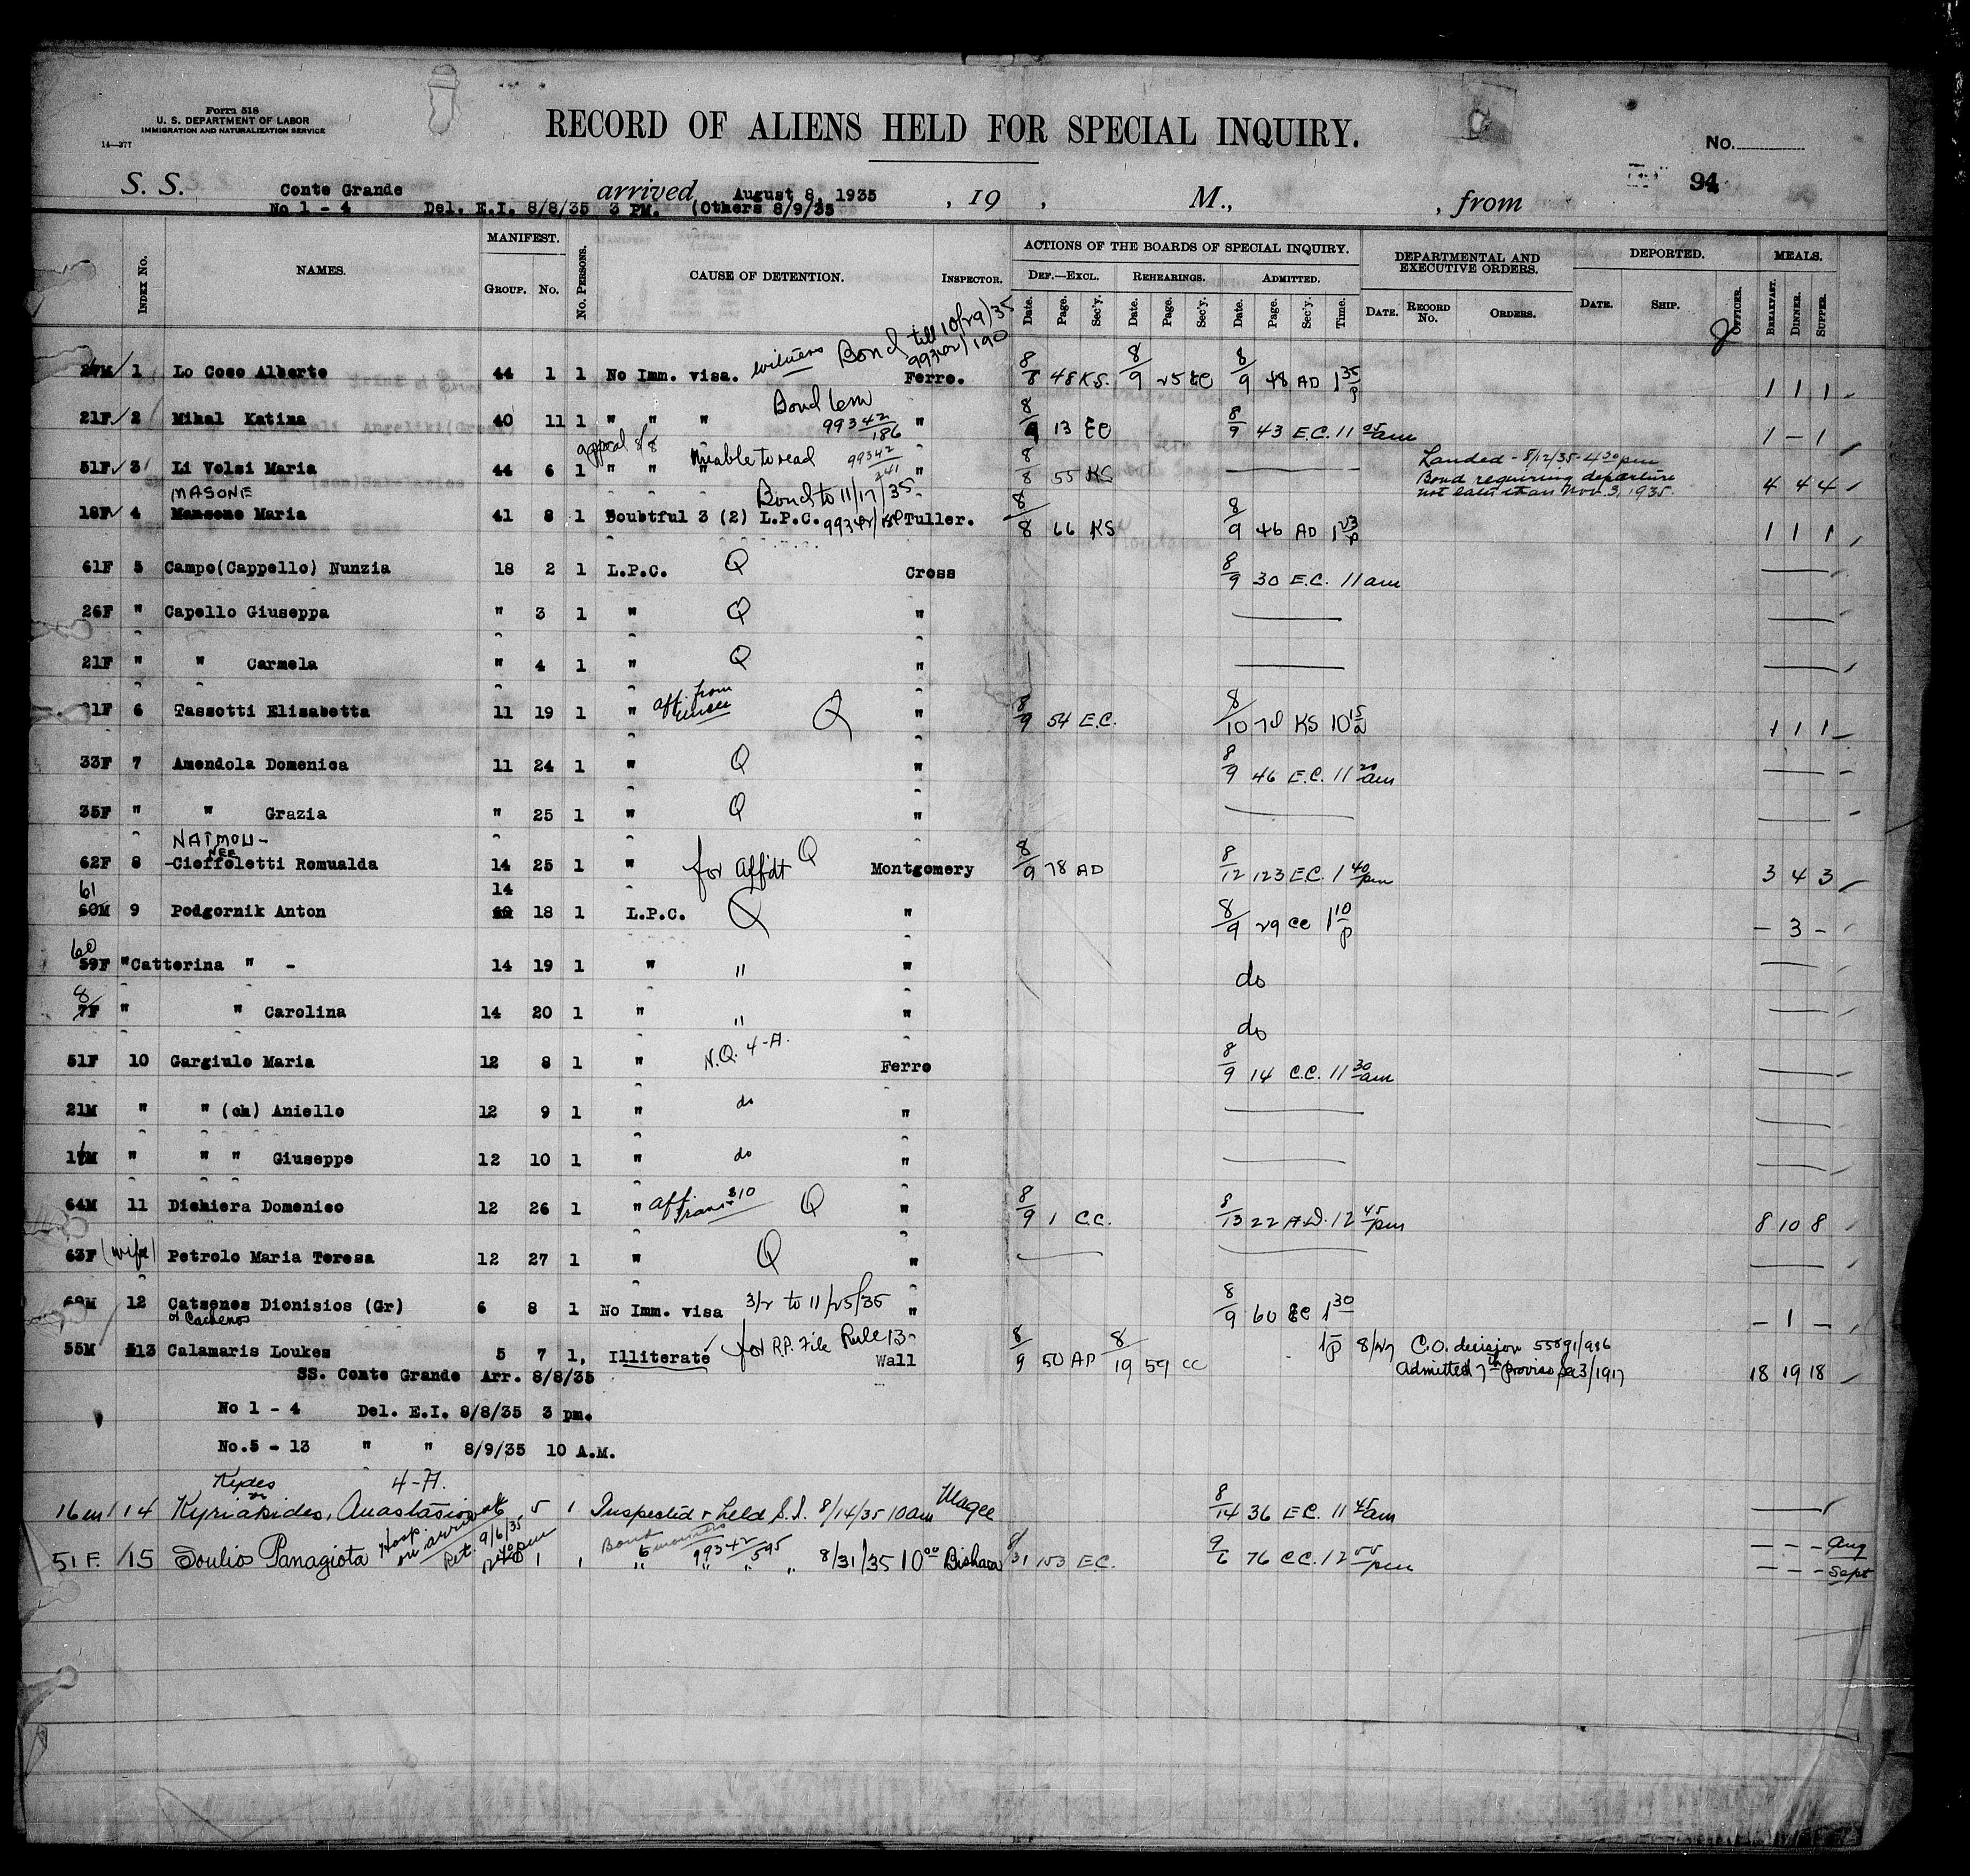 Form 518
U. S. DEPARTMENT OF LABOR
IMMIGRATION AND NATURALIZATION SERVICE
14—377
RECORD OF ALIENS HELD FOR SPECIAL INQUIRY.
No.
94
S. S. Conte Grande arrived August 8, 1935 , 19 , M., , from
No 1 - 4 Del. E.I. 8/8/35 3 PM. (Others 8/9/35
INDEX No. NAMES. MANIFEST. GROUP. No. No. PERSONS. CAUSE OF DETENTION. INSPECTOR. ACTIONS OF THE BOARDS OF SPECIAL INQUIRY. DEF.—EXCL. REHEARINGS. ADMITTED. DEPARTMENTAL AND EXECUTIVE ORDERS. DEPORTED. MEALS.
Date. Page. Sec'y. Date. Page. Sec'y. Date. Page. Sec'y. Time. DATE. RECORD No. ORDERS. DATE. SHIP. OFFICER. BREAKFAST. DINNER. SUPPER.
witness Bond till 10/29/35
1 Lo Coco Alberto 44 1 1 No Imm. visa. Ferro. 8/8 48 KS. 8/9 25 8/9 48 AD 1 35 P 1 1 1
Bond 6m
21F 2 Mihal Katina 40 11 1 " " " 99342/186 " 8/9 13 EC 8/9 43 E.C. 11 05 am 1 - 1
appeal 8/8 Unable to read 99342/241
51F 3 Li Volsi Maria 44 6 1 " " " " 8/8 55 KS Landed - 8/12/35 - 4 30 pm
Bond requiring departure
not later than Nov. 3, 1935. 4 4 4
MASONE Bond to 11/17/35
18F 4 Mansone Maria 41 8 1 Doubtful 3 (2) L.P.C. Tuller. 8/8 66 KS 8/9 46 AD 1 23 P 1 1 1
61F 5 Campo(Cappello) Nunzia 18 2 1 L.P.C. Q Cross 8/9 30 E.C. 11 am
26F " Capello Giuseppa " 3 1 " Q "
21F " " Carmela " 4 1 " Q "
6 Tassotti Elisabetta 11 19 1 " aff. from Q " 8/9 54 E.C. 8/10 70 KS 10 15 a 1 1 1
33F 7 Amendola Domenica 11 24 1 " Q " 8/9 46 E.C. 11 20 am
35F " " Grazia " 25 1 " Q "
NAIMOLI -
NEE
62F 8 -Cioffoletti Romualda 14 25 1 " for Affdt Q Montgomery 8/9 78 AD 8/12 123 E.C. 1 40 pm 3 4 3
61 14
60M 9 Podgornik Anton 18 1 L.P.C. Q " 8/9 29 CC 1 10 P - 3 -
60
59F " Catterina " - 14 19 1 " " " do
8
7F " " Carolina 14 20 1 " " " do
51F 10 Gargiulo Maria 12 8 1 " N.Q. 4-A. Ferro 8/9 14 C.C. 11 30 am
21M " " (ch) Aniello 12 9 1 " do "
" " " Giuseppe 12 10 1 " do "
64M 11 Dichiera Domenico 12 26 1 " aff. trans $10 Q " 8/9 1 C.C. 8/13 22 A.D. 12 45 pm 8 10 8
63F (wife) Petrolo Maria Teresa 12 27 1 " Q "
12 Catsenos Dionisios (Gr) 6 8 1 No Imm. visa 3/2 to 11/25/35 " 8/9 60 EC 1 30 - 1 -
or Cachenos
55M 13 Calamaris Loukes 5 7 1, Illiterate for R.P. File Rule 13- Wall 8/9 50 AD 8/19 59 CC 1 P 8/27 C.O. decision 55891/986
Admitted 7th proviso Sec 3/1917 18 19 18
SS. Conte Grande Arr. 8/8/35
No 1 - 4 Del. E.I. 8/8/35 3 pm.
No.5 - 13 " " 8/9/35 10 A.M.
Kydes or 4-A.
16 m 14 Kyriakides, Anastasios 5 1 Inspected & held S.I. 8/14/35 10 am Magee 8/14 36 E.C. 11 45 am
Hosp. on arrival Ret. 9/6/35 12 40 pm Bond 6 months 99342/595
51 F. 15 Soulio Panagiota 1 1 " " " " 8/31/35 10 00 Bishara 8/31 153 E.C. 9/6 76 C.C. 12 55 pm - - - Aug
- - - Sept